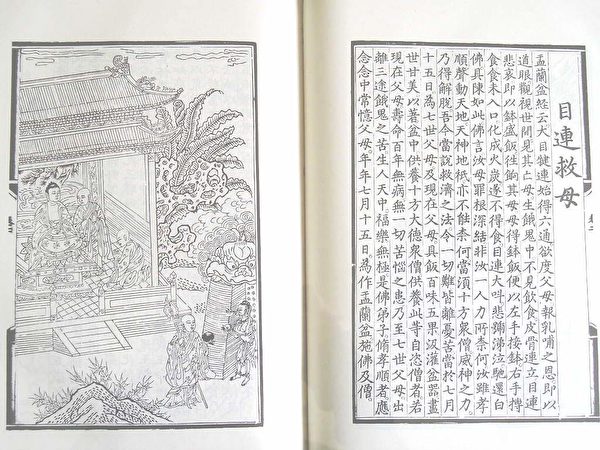 目連救母
盂蘭盆經云大目犍連始得六通欲度父母報乳哺之恩即以
道眼觀視世間見其亡母生餓鬼中不見飲食皮骨連立目連
悲哀即以鉢盛飯往餉其母母得鉢飯便以左手接鉢右手摶
食食未入口化成火炭遂不得食目連大叫悲號涕泣馳還白
佛具陳如此佛言汝母罪根深結非汝一人力所柰何汝雖孝
順聲動天地天神地祇亦不能柰何當須十方衆僧威神之力
乃得解脫吾今當說救濟之法令一切難皆離憂苦當於七月
十五日為七世父母及現在父母具飯百味五果汲灌盆器盡
世甘美以著盆中供養十方大德衆僧供養此等自恣僧者若
現在父母壽命百年無病無一切苦惱之患乃至七世父母出
離三途餓鬼之苦生人天中福樂無極是佛弟子脩孝順者應
念念中常憶父母年年七月十五日為作盂蘭盆施佛及僧